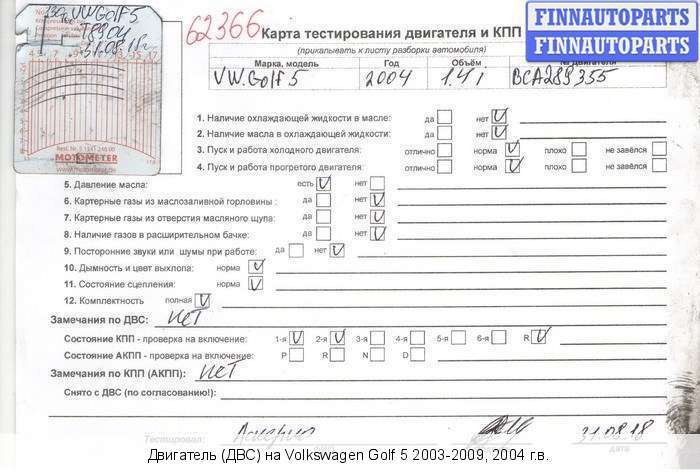 VW Golf 5
31.08.18г
MOTOMETER
62366
Карта тестирования двигателя и КПП
(прикалывать к листу разборки автомобиля)
FINNAUTOPARTS
FINNAUTOPARTS
Марка, модель Год Объём № двигателя
VW.Golf 5 2004 1.4i BCA289355
1. Наличие охлаждающей жидкости в масле: да нет V
2. Наличие масла в охлаждающей жидкости: да нет V
3. Пуск и работа холодного двигателя: отлично норма V плохо не завёлся
4. Пуск и работа прогретого двигателя: отлично норма V плохо не завёлся
5. Давление масла: есть V нет
6. Картерные газы из маслозаливной горловины : да нет V
7. Картерные газы из отверстия масляного щупа: да нет V
8. Наличие газов в расширительном бачке: да нет V
9. Посторонние звуки или шумы при работе: да нет V
10. Дымность и цвет выхлопа: норма V
11. Состояние сцепления: норма V
12. Комплектность полная V
Замечания по ДВС: нет
Состояние КПП - проверка на включение: 1-я V 2-я V 3-я 4-я 5-я 6-я R V
Состояние АКПП - проверка на включение: P R N D
Замечания по КПП (АКПП): нет
Снято с ДВС (по согласованию!):
Тестировал: 31.08.18
дата
Двигатель (ДВС) на Volkswagen Golf 5 2003-2009, 2004 г.в.